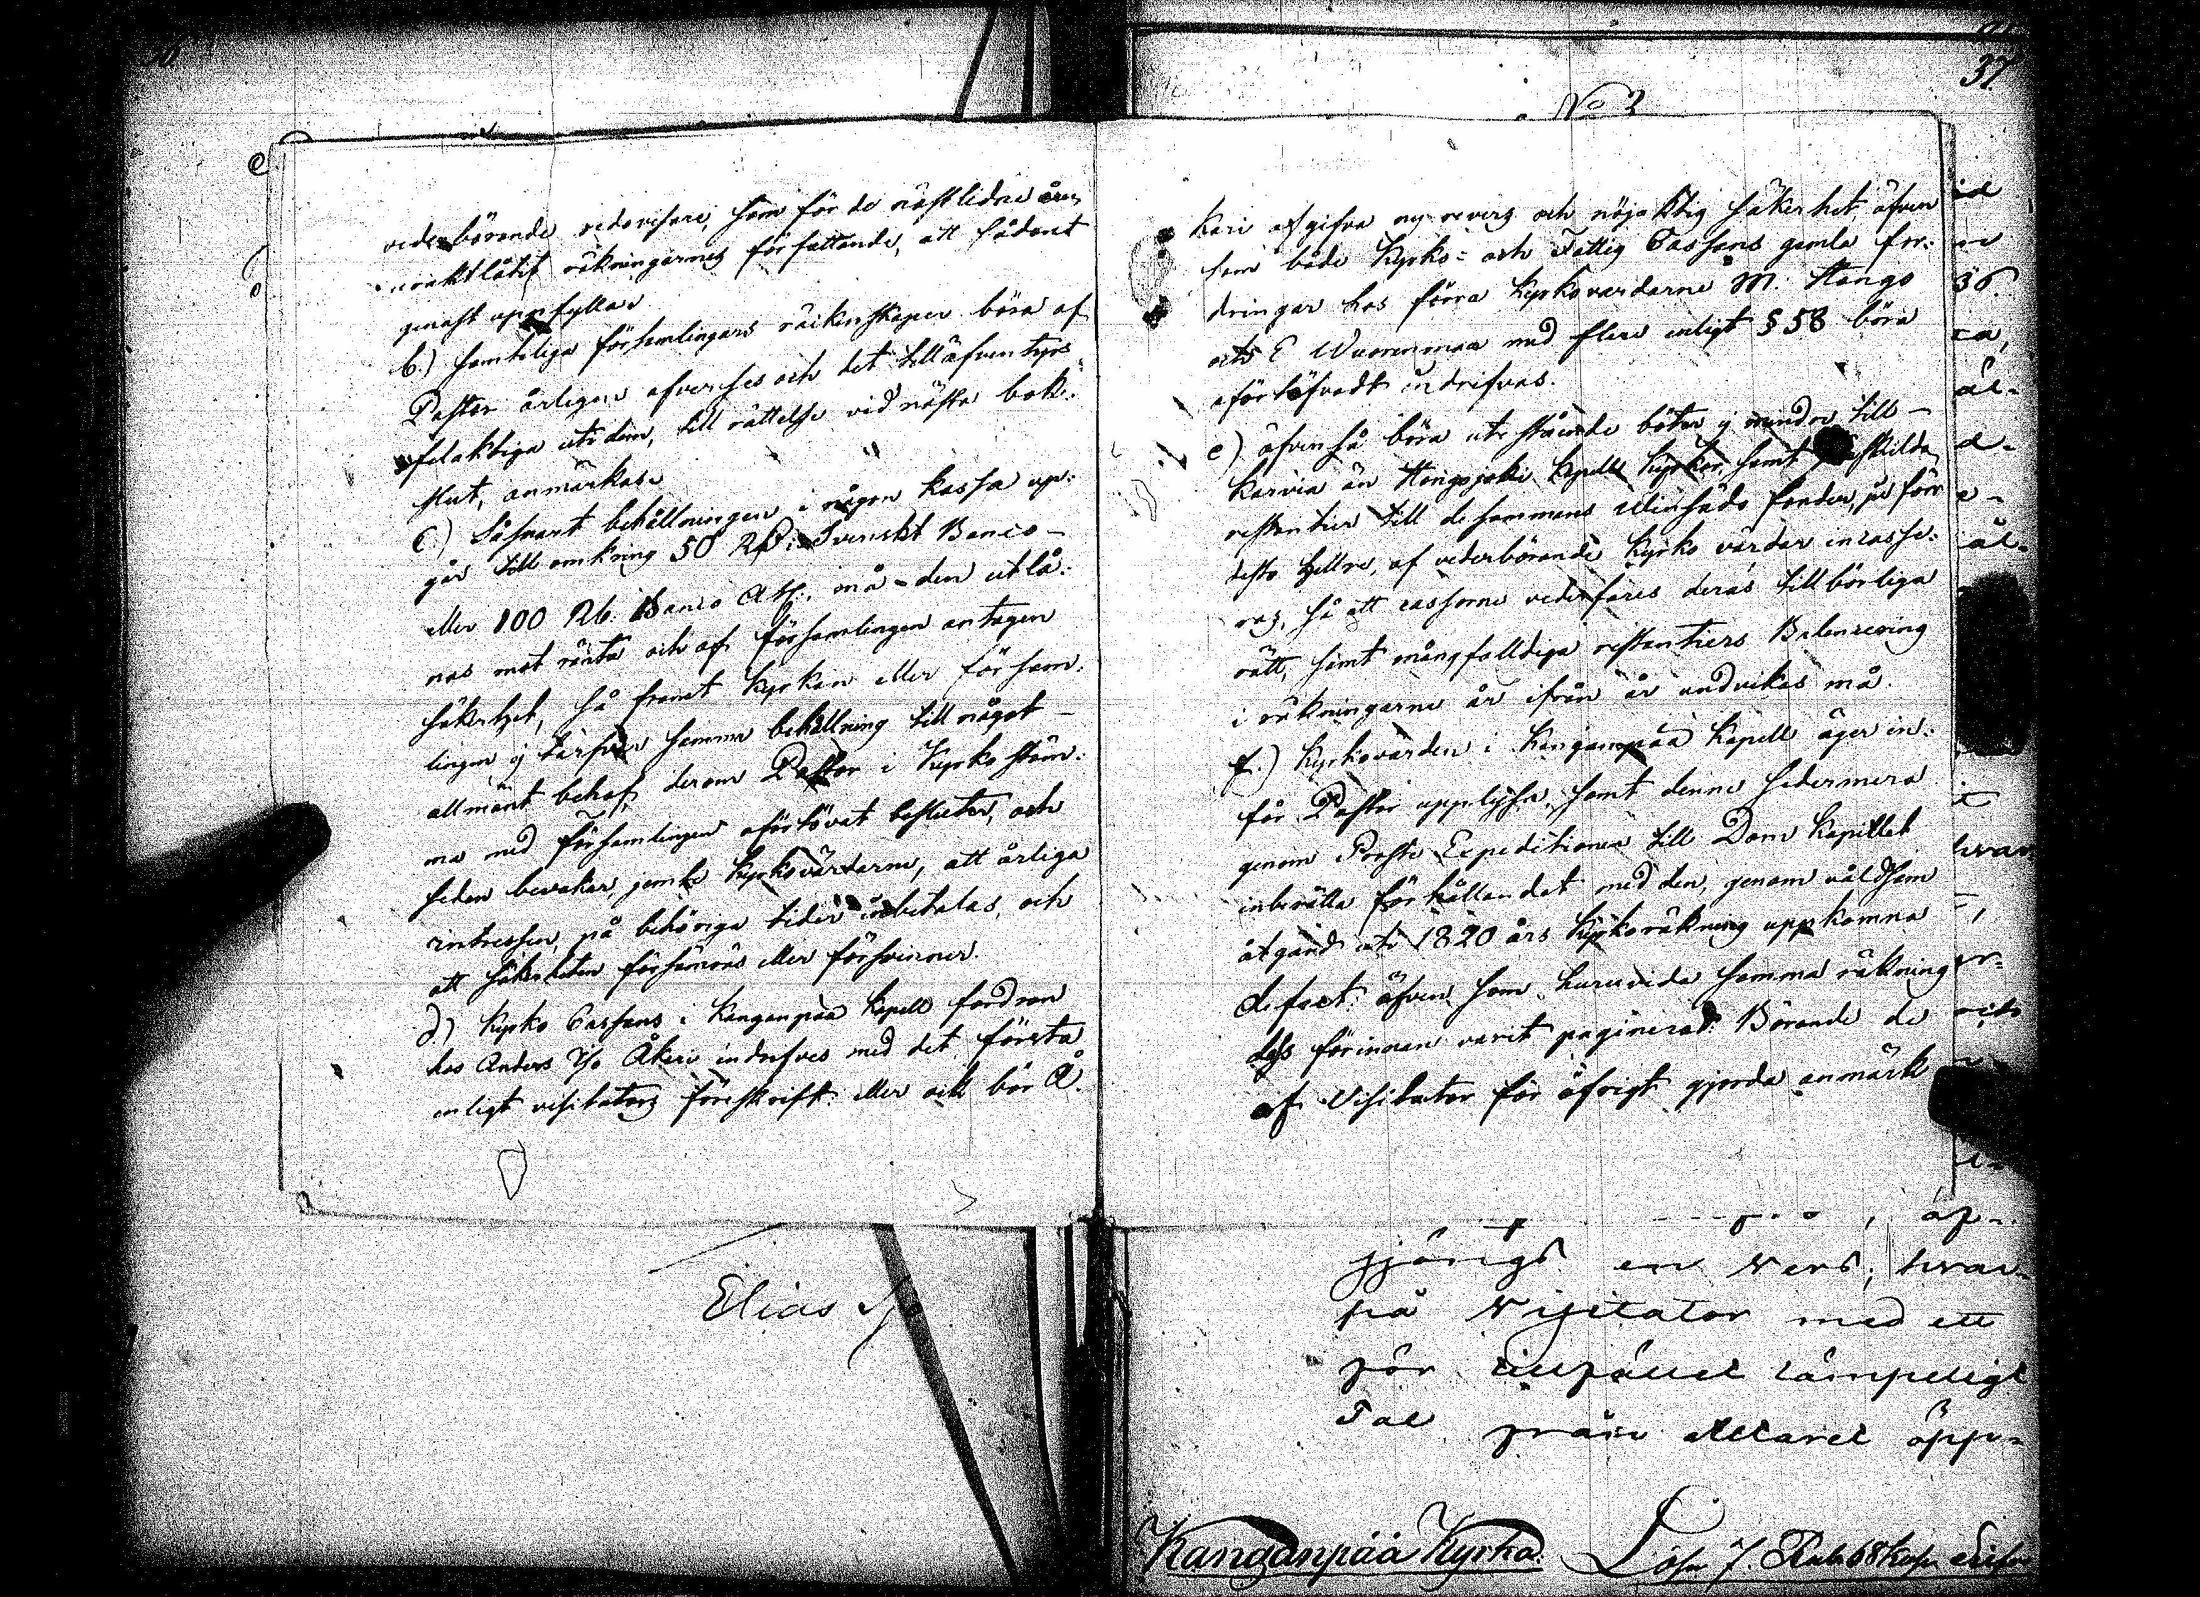 36
37.
No 3
vederbörande redovisare, som för de nästlidne åren
uraktlåtit räkningarnes författande, att sådant
genast uppfylla.
b.) samteliga församlingars räikenskaper böra af
Pastor årligen afverses och det till äfventyrs
felaktiga uti dem, till rättelse vid nästa bok-
slut, anmärkas.
c.) Såsnart behållningen i någon kassa up-
går till omkring 50 Rd. Svenskt Banco
eller 100 Rb. Banco Ass., må den utlå-
nas mot ränta och af församlingen antagen
säkerhet, så framt kyrkan eller försam-
lingen ej tarfvar samma behållning till något
allmänt behof, derom Pastor i Kyrko stäm-
ma med församlingen oförtövat besluter, och
sedan bevakar, jemte Kyrkovärdarne, att årliga
intressen, på behöriga tider inbetalas, och
att säkerheten försämras eller försvinner.
d.) Kyrko Cassans i Kanganpää Kapell fordran
hos Anders Åkeri indrifves med det första
enligt visitators föreskrift: eller ock bör Å.
keri afgifva ny revers och nöjaktig säkerhet, äfven
som både Kyrko- och Fattig Cassans gamla for-
dringar hos förra Kyrkovärdarne M. Hongo
och E Wuorenmaa med flere enligt § 58 böra
oförtöfvadt indrifvas.
e) äfvenså böra utestående böter ej mindre till
Karvia än Hongojoki Kapells Kyrkor, samt
restantier till desammas fonder, ju förr
desto hellre, af vederbörande Kyrko värdar incasse-
ras, så att cassorne vederfares deras tillbörliga
rätt, samt mångfalldiga restantiers Balancering
i räkningarne år ifrån år undvikas må.
f.) Kyrkovärden i Kangaanpää Kapell äger in-
för Pastor upplysa, samt denne sedermera
genom Prosts Expeditionen till Dom Kapitlet
inberätta förhållandet med den, genom våldsam
åtgärd uti 1820 års Kyrkoräkning uppkomna
defect: äfven som huruvida samma räkning
dess förinnan varit paginerad: Börande de
af Visitator för öfrigt gjorda anmärk
Elias
en vers, hvar-
på Visitator med ett
för tillfället lämpeligt
Tal från Altaret öpp-
Kanganpää Kyrka.